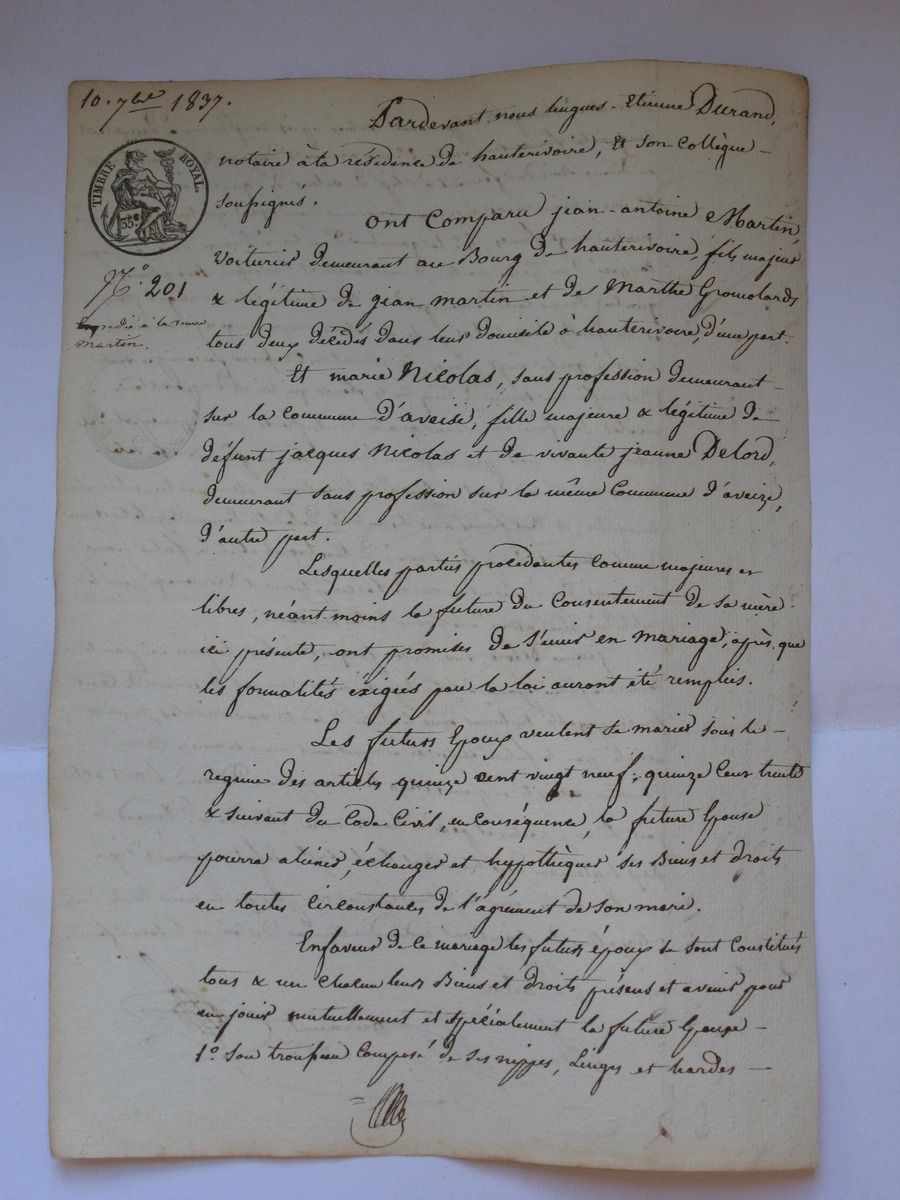 10. 7bre 1837.
TIMBRE ROYAL.
35c
N.° 201
Expedié à la veuve
Martin.
Pardevant nous hugues-Etienne Durand,
notaire à la résidence de hauterivoire, Et son Collègue
soussignés.
Ont Comparu jean-antoine Martin,
Voiturier demeurant au Bourg de hauterivoire, fils majeur
& légitime de jean martin et de Marthe
tous deux décédés dans leur domicile à hauterivoire, d'une part.
Et marie Nicolas, sans profession demeurant
sur la Commune d'aveise, fille majeure & légitime de
défunt jacques Nicolas et de vivante jeanne Delord,
demeurant sans profession sur la même Commune d'aveize,
d'autre part.
Lesquelles parties procédantes comme majeures et
libres, néant-moins la future du Consentement de sa mère
ici présente, ont promises de s'unir en mariage, après que
les formalités exigées par la loi auront été remplies.
Les futurs Epoux veulent se marier sous le
regime des articles quinze cent vingt neuf, quinze cent trente
& suivant du Code Civil, en conséquence, la future Epouse
pourra aliéner, échanger et hypothéquer ses Biens et droits
en toutes circonstances de l'agrément de son mari.
En faveur de ce mariage les futurs époux se sont Constitués
tous & un chacun leurs Biens et droits présens et avenir pour
en jouir mutuellement et spécialement la future Epouse
1.° son trousseau Composé de ses nippes, Linges et hardes